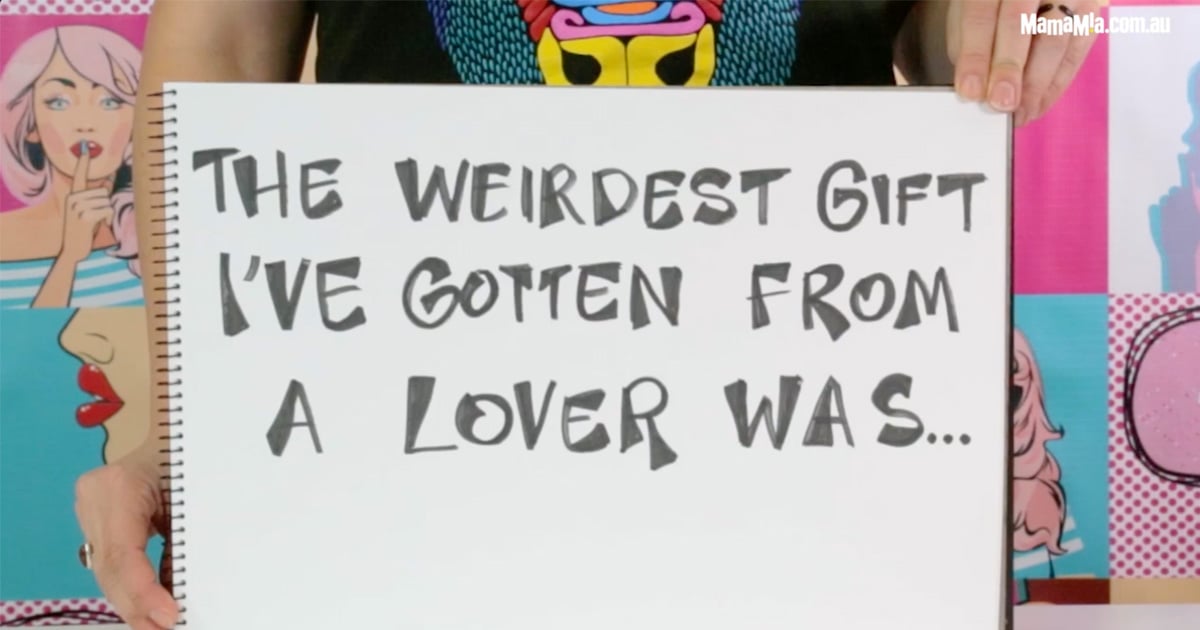 MamaMia.com.au
THE WEIRDEST GIFT
I'VE GOTTEN FROM
A LOVER WAS...